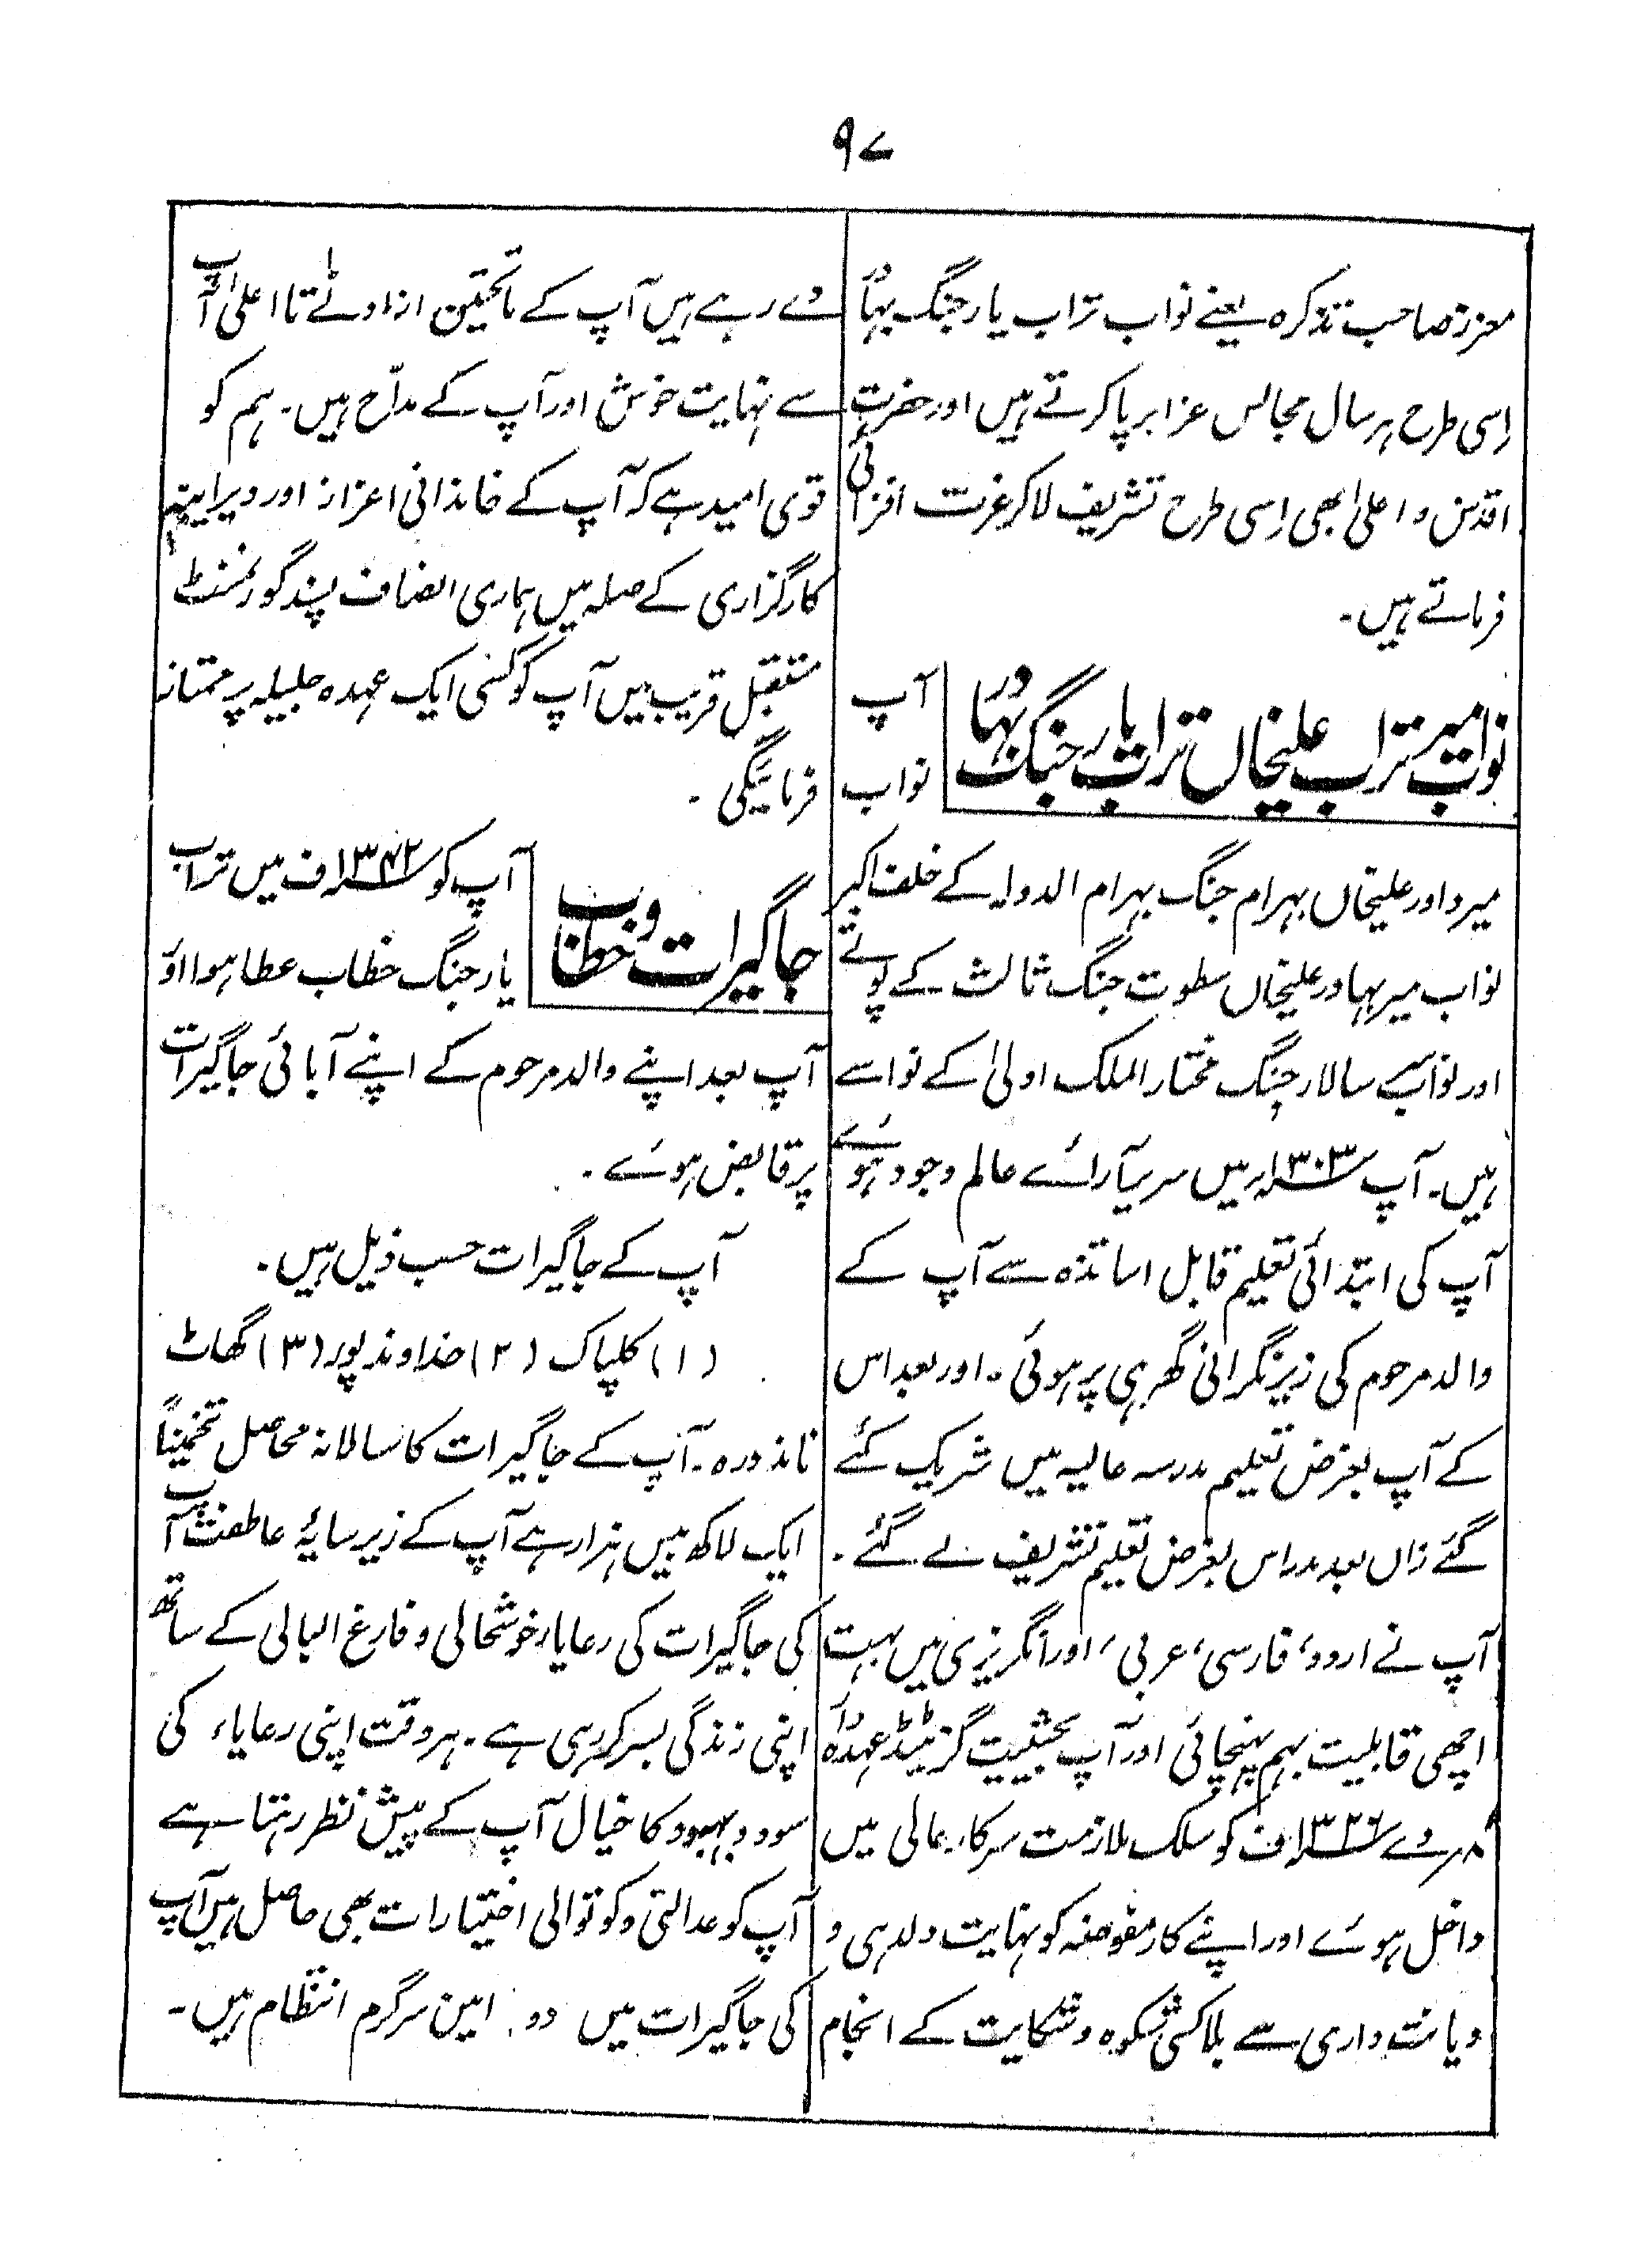 ۹۷
معزز صاحب تذکرہ یعنے نواب تراب یار جنگ بہادر
اِسی طرح ہر سال مجالس عزا برپا کرتے ہیں اور حضرت
اقدس و اعلیٰ بھی اِسی طرح تشریف لاکر عزت افزائی
فرماتے ہیں۔
نواب میر تراب علیخاں تراب یار جنگ بہادر
آپ
نواب
میر داور علیخاں بہرام جنگ بہرام الدولہ کے خلف اکبر
نواب میر بہادر علیخاں سطوت جنگ ثالث کے پوتے
اور نواب سر سالار جنگ مختار الملک اولیٰ کے نواسے
ہیں۔ آپ ۱۳۰۳؁ میں سریر آرائے عالم وجود ہوئے
آپ کی ابتدائی تعلیم قابل اساتذہ سے آپ کے
والد مرحوم کی زیر نگرانی گھر ہی پر ہوئی۔ اور بعد اس
کے آپ بغرض تعلیم مدرسہ عالیہ میں شریک کئے
گئے زاں بعد مدراس بغرض تعلیم تشریف لے گئے۔
آپ نے اردو، فارسی، عربی، اور انگریزی میں بہت
اچھی قابلیت بہم پہنچائی اور آپ بحیثیت گزیٹیڈ عہدہ دار
۸ مردے ۱۳۲۶؁ ف کو سلک ملازمت سرکار عالی میں
داخل ہوئے اور اپنے کار مفوضہ کو نہایت دلدہی و
دیانت داری سے بلا کسی شکوہ و شکایت کے انجام
دے رہے ہیں آپ کے ماتحتین از ادنےٰ تا اعلیٰ آپ
سے نہایت خوش اور آپ کے مدّاح ہیں۔ ہم کو
قوی امید ہے کہ آپ کے خاندانی اعزاز اور دیرینہ
کارگزاری کے صلہ میں ہماری انصاف پسند گورنمنٹ
مستقبل قریب میں آپ کو کسی ایک عہدہ جلیلہ پر ممتاز
فرمائیگی۔
جاگیرات و خطاب
آپ کو ۱۳۴۲؁ ف میں تراب
یار جنگ خطاب عطا ہوا اور
آپ بعد اپنے والد مرحوم کے اپنے آبائی جاگیرات
پر قابض ہوئے۔
آپ کے جاگیرات حسب ذیل ہیں۔
(۱) کلپاک (۲) خداوند پور (۳) گھاٹ
ناندورہ۔ آپ کے جاگیرات کا سالانہ محاصل تخمیناً
ایک لاکھ بیس ہزار ہے آپ کے زیر سایۂ عاطفت آپ
کی جاگیرات کی رعایا خوشحالی و فارغ البالی کے ساتھ
اپنی زندگی بسر کر رہی ہے۔ ہر وقت اپنی رعایاء کی
سود و بہبود کا خیال آپ کے پیش نظر رہتا ہے
آپ کو عدالتی و کوتوالی اختیارات بھی حاصل ہیں آپ
کی جاگیرات میں دو امین سرگرم انتظام ہیں۔